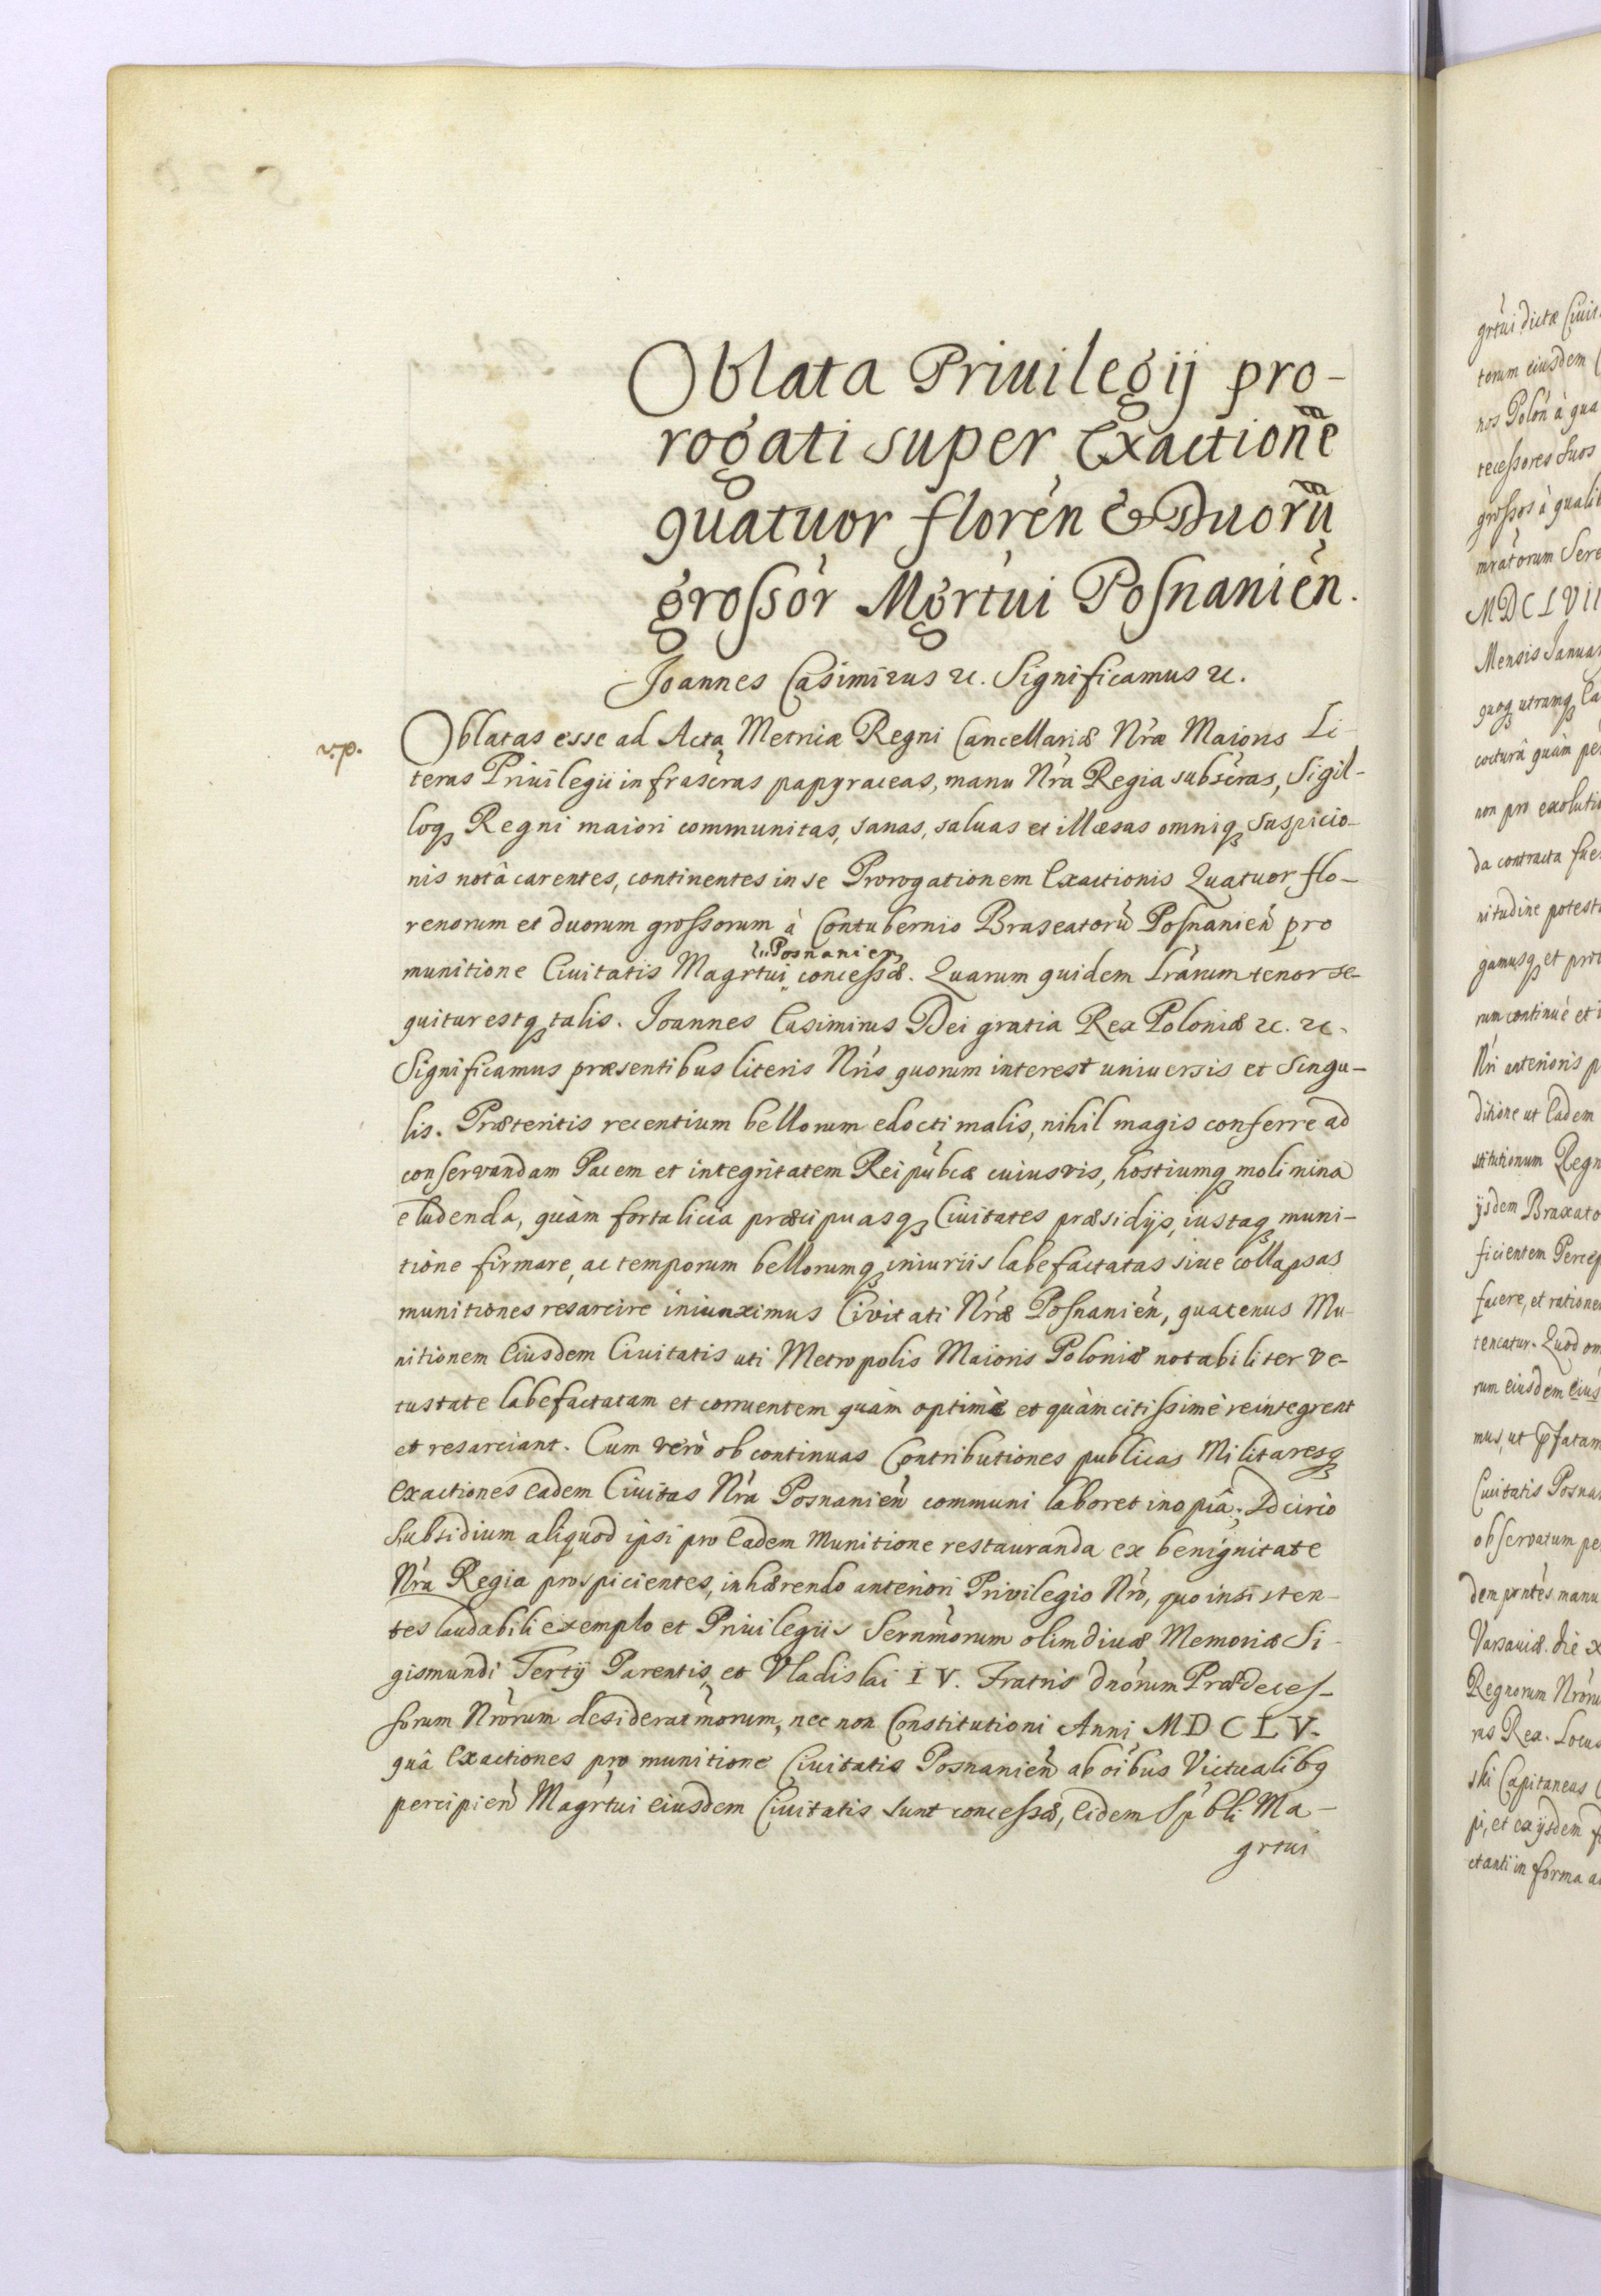 Oblata Priuilegij pro-
rogati super Exactione
quatuor floren̄ & Duorū
grossor̄ Mgrtui Posnanien̄.
Joannes Casimirus etc. Significamus etc.
v.p.
Oblatas esse ad Acta Metricæ Regni Cancellariæ Nræ Maioris Li-
teras Priuilegii infrascras papyraceas, manu Nra Regia subscras, Sigil-
loq̨ Regni maiori communitas, sanas, saluas et illæsas omniq̨ suspicio-
nis notâ carentes, continentes in se Prorogationem Exactionis Quatuor flo-
renorum et duorum grossorum à Contubernio Braseatorū Posnanien̄ pro
Posnanien
munitione Ciuitatis Magrtui concessæ. Quarum quidem Lrarum tenor se-
quitur estq̨ talis. Joannes Casimirus Dei gratia Rex Poloniæ etc. etc.
Significamus præsentibus literis Nris quorum interest uniuersis et singu-
lis. Præteritis recentium bellorum edocti malis, nihil magis conferre ad
conservandam Pacem et integritatem Reipubcæ cuiusvis, hostiumq̨ molimina
eludenda, quàm fortalicia præcipuasq̨ Ciuitates præsidijs, iustaq̨ muni-
tione firmare, ac temporum bellorumq̨ iniuriis labefactatas siue collapsas
munitiones resarcire iniunximus Civitati Nræ Posnanien̄, quatenus Mu-
nitionem Eiusdem Ciuitatis uti Metropolis Maioris Poloniæ notabiliter ve-
tustate labefactatam et corruentem quàm optimè et quàm citissimè reintegrent
et resarciant. Cum verò ob continuas Contributiones publicas Militaresq̨
exactiones eadem Ciuitas Nra Posnanien̄ communi laboret inopiâ; Idcirco
Subsidium aliquod ipsi pro Eadem Munitione restauranda ex benignitate
Nra Regia prospicientes, inhærendo anteriori Privilegio Nro, quo insisten-
tes laudabili exemplo et Priuilegiis Sernmorum olim diuæ Memoriæ Si-
gismundi Tertij Parentis, et Vladislai IV. Fratris dnorum Prædeces-
sorum Nrorum desideratmorum, nec non Constitutioni Anni MDCLV.
quâ Exactiones pro munitione Ciuitatis Posnanien̄ ab oibus Victualibq
percipien̄ Magrtui eiusdem Ciuitatis sunt concessæ, Eidem Spbli Ma-
grtui
grtui dictæ Ciuit
torum eiusdem
nos Polon̄ à qua
tecessores suos
grossos à qualit
mratorum Sere
MDCLVII
Mensis Januar
quoq̨ utramq̨ Ca
cocturâ quàm pe
non pro exolutio
da contracta fue
nitudine potesta
gamusq̨ et pro
rum continuè et i
Nri anterioris p
ditione ut Eadem
stitutionum Regn
ijsdem Braxato
ficientem Percep
facere, et ratione
teneatur. Quod om
rum eiusdem eius
mus, ut pfatam
Ciuitatis Posna
observatum pe
dem pntes manu
Varsauiæ die x
Regnorum Nroru
rus Rex. Locus
ski Capitaneus
pi, et ex ijsdem
ctanti in forma a